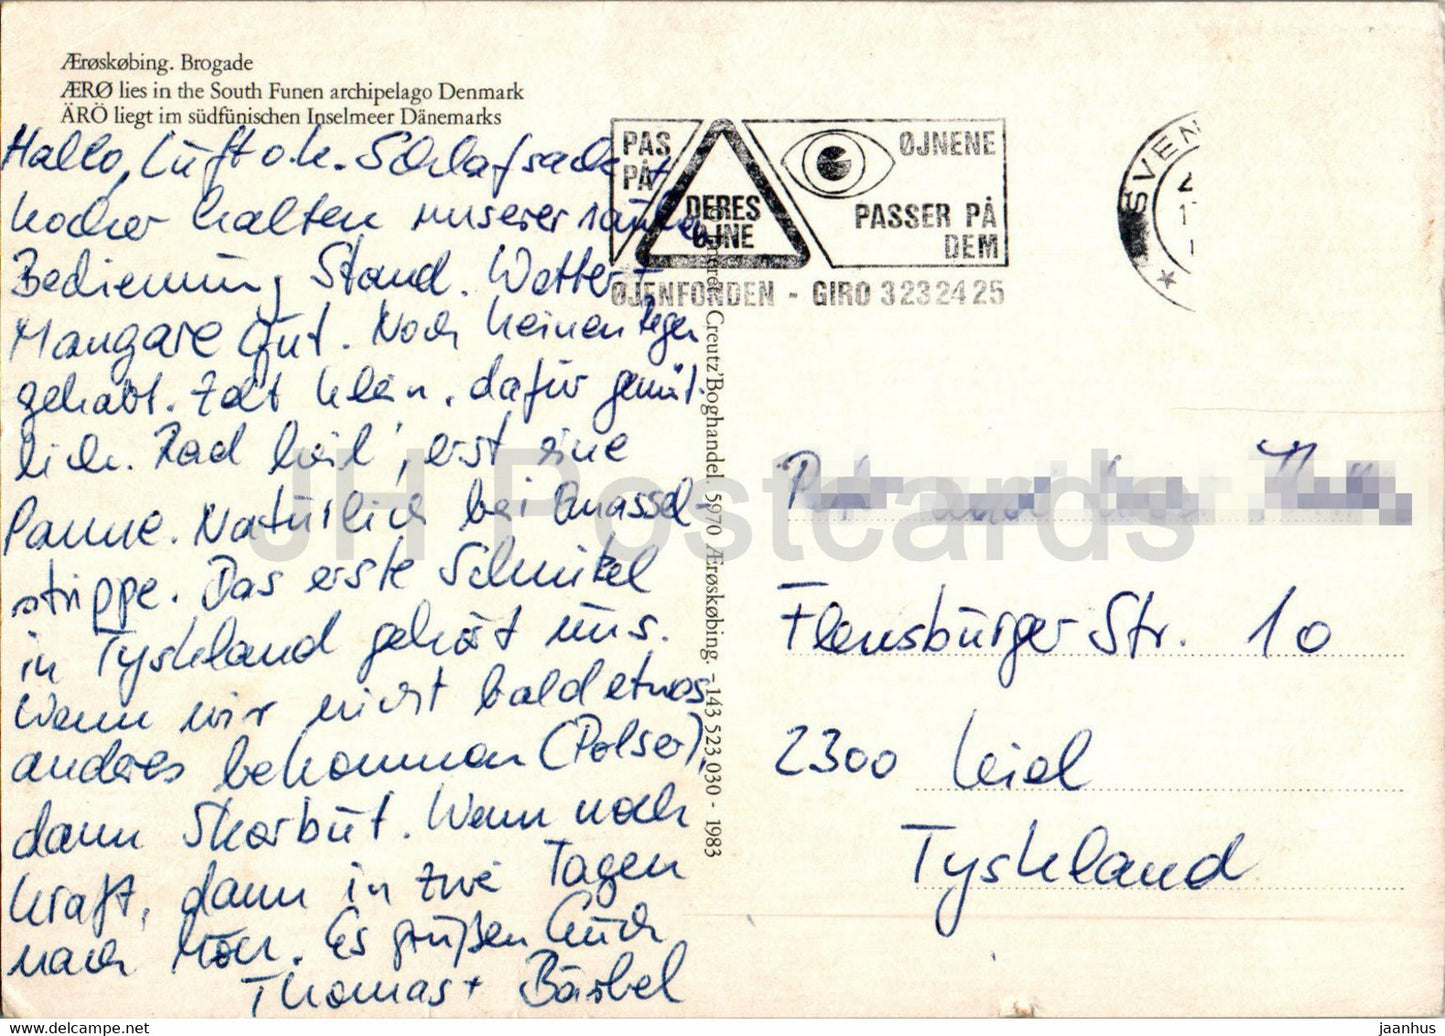 Ærøskøbing. Brogade
ÆRØ lies in the South Funen archipelago Denmark
ÄRÖ liegt im südfünischen Inselmeer Dänemarks
Hallo, Luft o.k. Schlafsack +
Kocher halten unserer rauhen
Bedienung Stand. Wetter +
Mangare gut. Noch keinen Regen
gehabt. Zelt klein, dafür gemüt-
lich. Rad heil, erst eine
Panne. Natürlich bei
strippe. Das erste Schnitzel
in Tyskland gehört uns.
Wenn wir nicht bald etwas
anderes bekommen (Polser),
dann Skorbut. Wenn noch
Kraft, dann in zwei Tagen
nach Mön. Es grüßen Euch
Thomas + Bärbel
PAS PÅ
DERES ØJNE
ØJNENE
PASSER PÅ
DEM
ØJENFONDEN - GIRO 3 23 24 25
SVEN
Creutz'Boghandel. 5970 Ærøskøbing. - 143 523,030 - 1983
Flensburger Str. 10
2300 Kiel
Tyskland
JH Postcards
hip.com/en-us
jaanhus